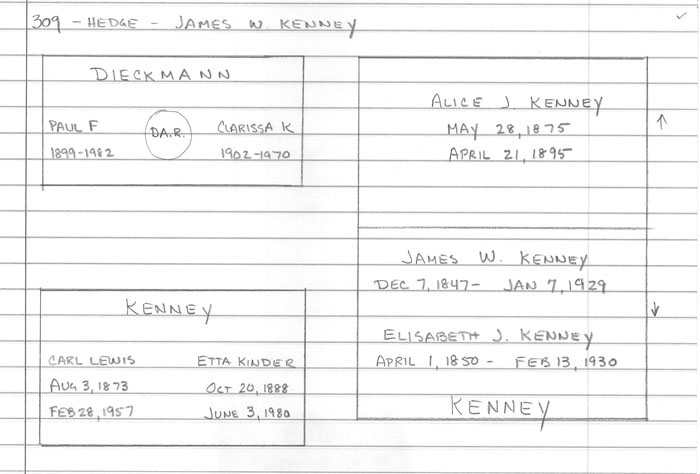 309 - HEDGE - JAMES W. KENNEY
DIECKMANN
PAUL F
1899-1982
D.A.R.
CLARISSA K
1902-1970
ALICE J. KENNEY
MAY 28, 1875
APRIL 21, 1895
JAMES W. KENNEY
DEC 7, 1847 - JAN 7, 1929
ELISABETH J. KENNEY
APRIL 1, 1850 - FEB 13, 1930
KENNEY
KENNEY
CARL LEWIS
AUG 3, 1873
FEB 28, 1957
ETTA KINDER
OCT 20, 1888
JUNE 3, 1980